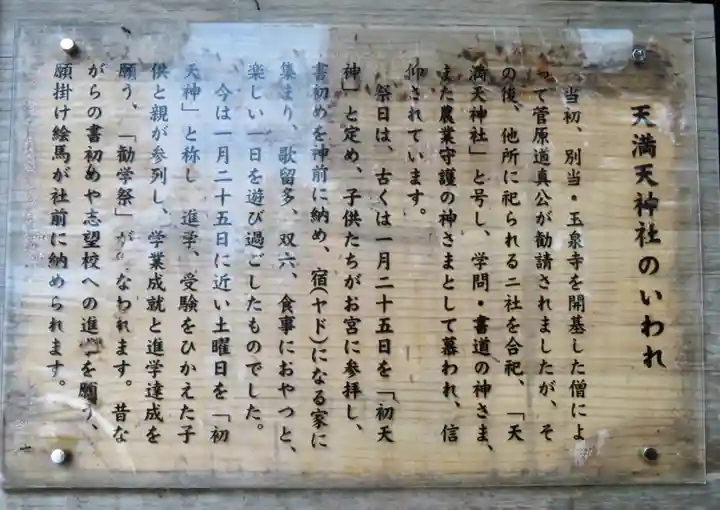 天満天神社のいわれ
当初、別当・玉泉寺を開基した僧によ
って菅原道真公が勧請されましたが、そ
の後、他所に祀られる二社を合祀、「天
満天神社」と号し、学問・書道の神さま、
また農業守護の神さまとして慕われ、信
仰されています。
祭日は、古くは一月二十五日を「初天
神」と定め、子供たちがお宮に参拝し、
書初めを神前に納め、宿(ヤド)になる家に
集まり、歌留多、双六、食事におやつと、
楽しい一日を遊び過ごしたものでした。
今は一月二十五日に近い土曜日を「初
天神」と称し 進学、受験をひかえた子
供と親が参列し、学業成就と進学達成を
願う、「勧学祭」が なわれます。昔な
がらの書初めや志望校への進学を願う、
願掛け絵馬が社前に納められます。